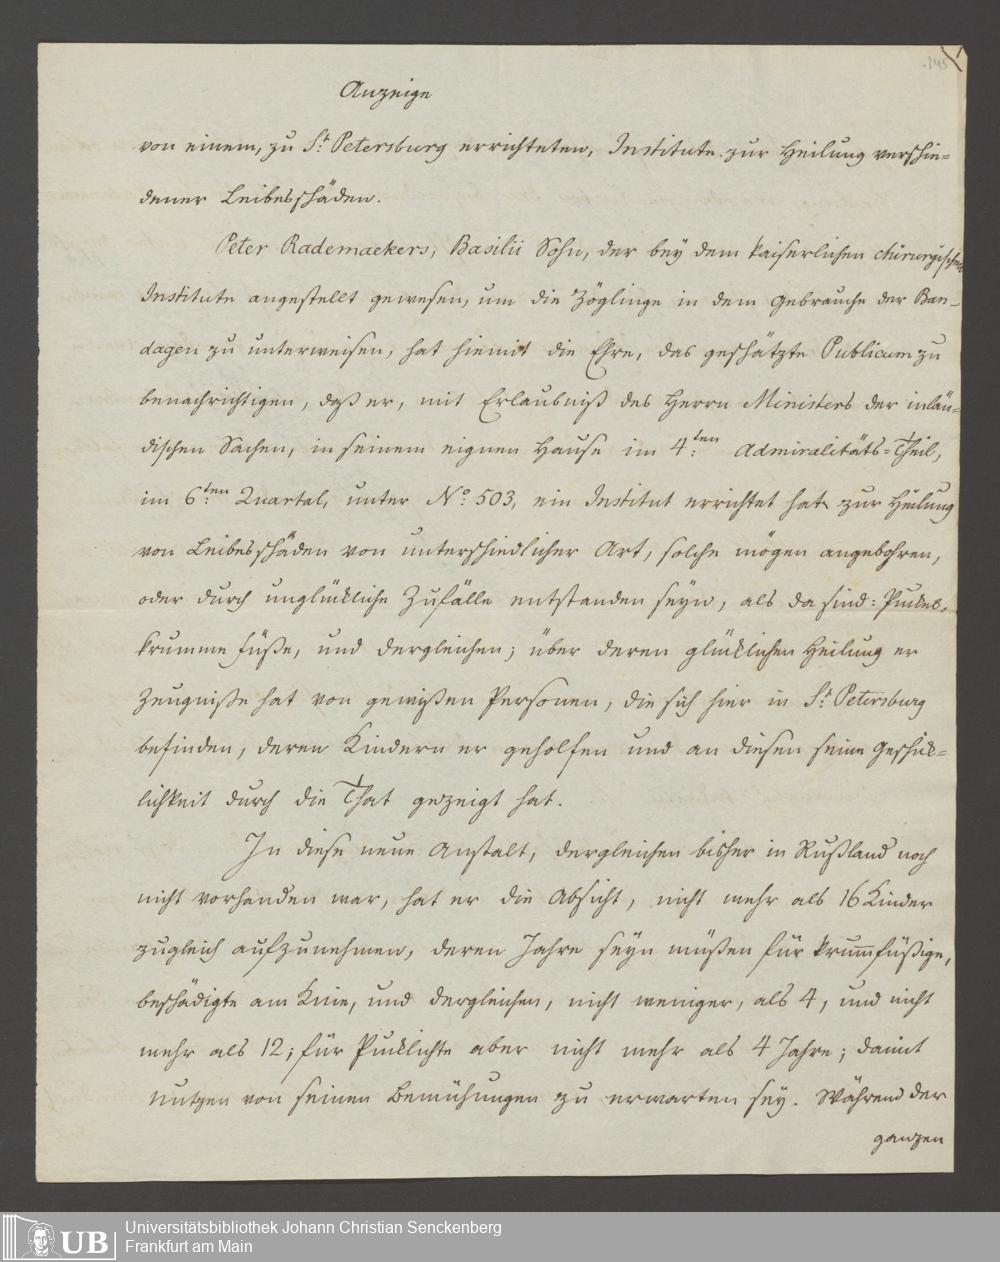 145
Anzeige
von einem, zu St. Petersburg errichteten, Institute zur Heilung verschie=
dener Leibesschäden.
Peter Rademaekers, Basilii Sohn, der bey dem kaiserlichen chirurgischen
Institute angestellt gewesen, um die Zöglinge in dem Gebrauche der Ban=
dagen zu unterweisen, hat hiemit die Ehre, das geschätzte Publicum zu
benachrichtigen, daß er, mit Erlaubniß des Herrn Ministers der inlän=
dischen Sachen, in seinem eignen Hause im 4ten Admiralitäts=Theil,
im 6ten Quartal, unter No. 503, ein Institut errichtet hat zur Heilung
von Leibesschäden von unterschiedlicher Art, solche mögen angebohren,
oder durch unglückliche Zufälle entstanden seyn, als da sind: Puckel,
krumme Füße, und dergleichen; über deren glücklichen Heilung er
Zeugniße hat von gewißen Personen, die sich hier in St. Petersburg
befinden, deren Kindern er geholfen und an diesen seine Geschick=
lichkeit durch die That gezeigt hat.
In diese neue Anstalt, dergleichen bisher in Rußland noch
nicht vorhanden war, hat er die Absicht, nicht mehr als 16 Kinder
zugleich aufzunehmen, deren Jahre seyn müßen für krummfüßige,
beschädigte am Knie, und dergleichen, nicht weniger, als 4, und nicht
mehr als 12; für Pucklichte aber nicht mehr als 4 Jahre; damit
Nutzen von seinen Bemühungen zu erwarten sey. Während der
ganzen
UB
Universitätsbibliothek Johann Christian Senckenberg
Frankfurt am Main